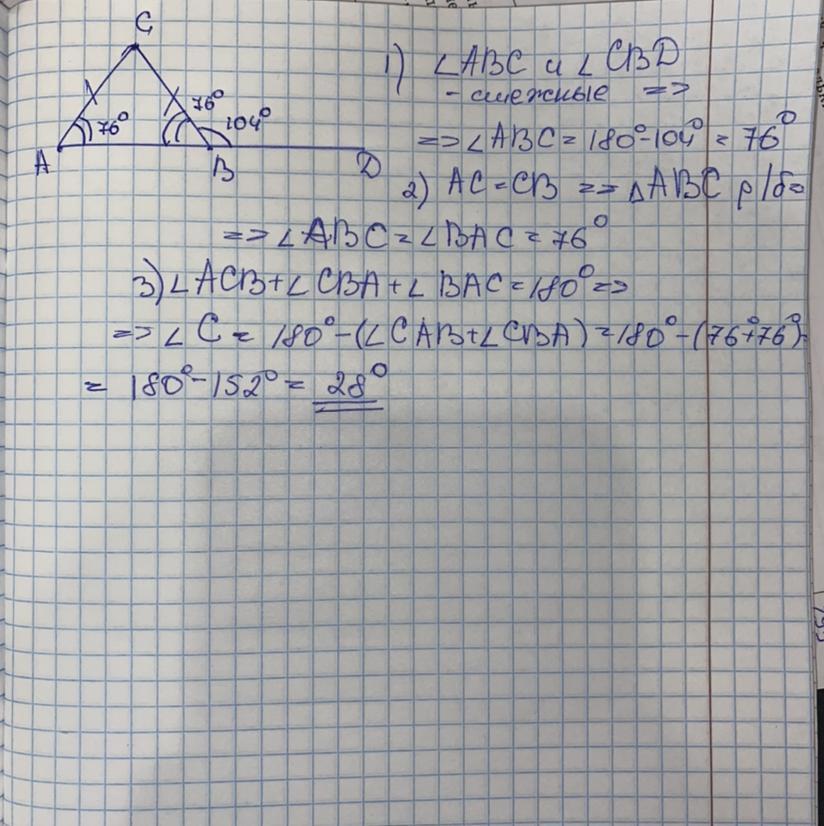 C
76°
76°
104°
A
B
D
1) ∠ABC и ∠CBD
- смежные =>
=> ∠ABC = 180° - 104° = 76°
2) AC = CB => △ABC р/б =>
=> ∠ABC = ∠BAC = 76°
3) ∠ACB + ∠CBA + ∠BAC = 180° =>
=> ∠C = 180° - (∠CAB + ∠CBA) = 180° - (76° + 76°) =
= 180° - 152° = 28°